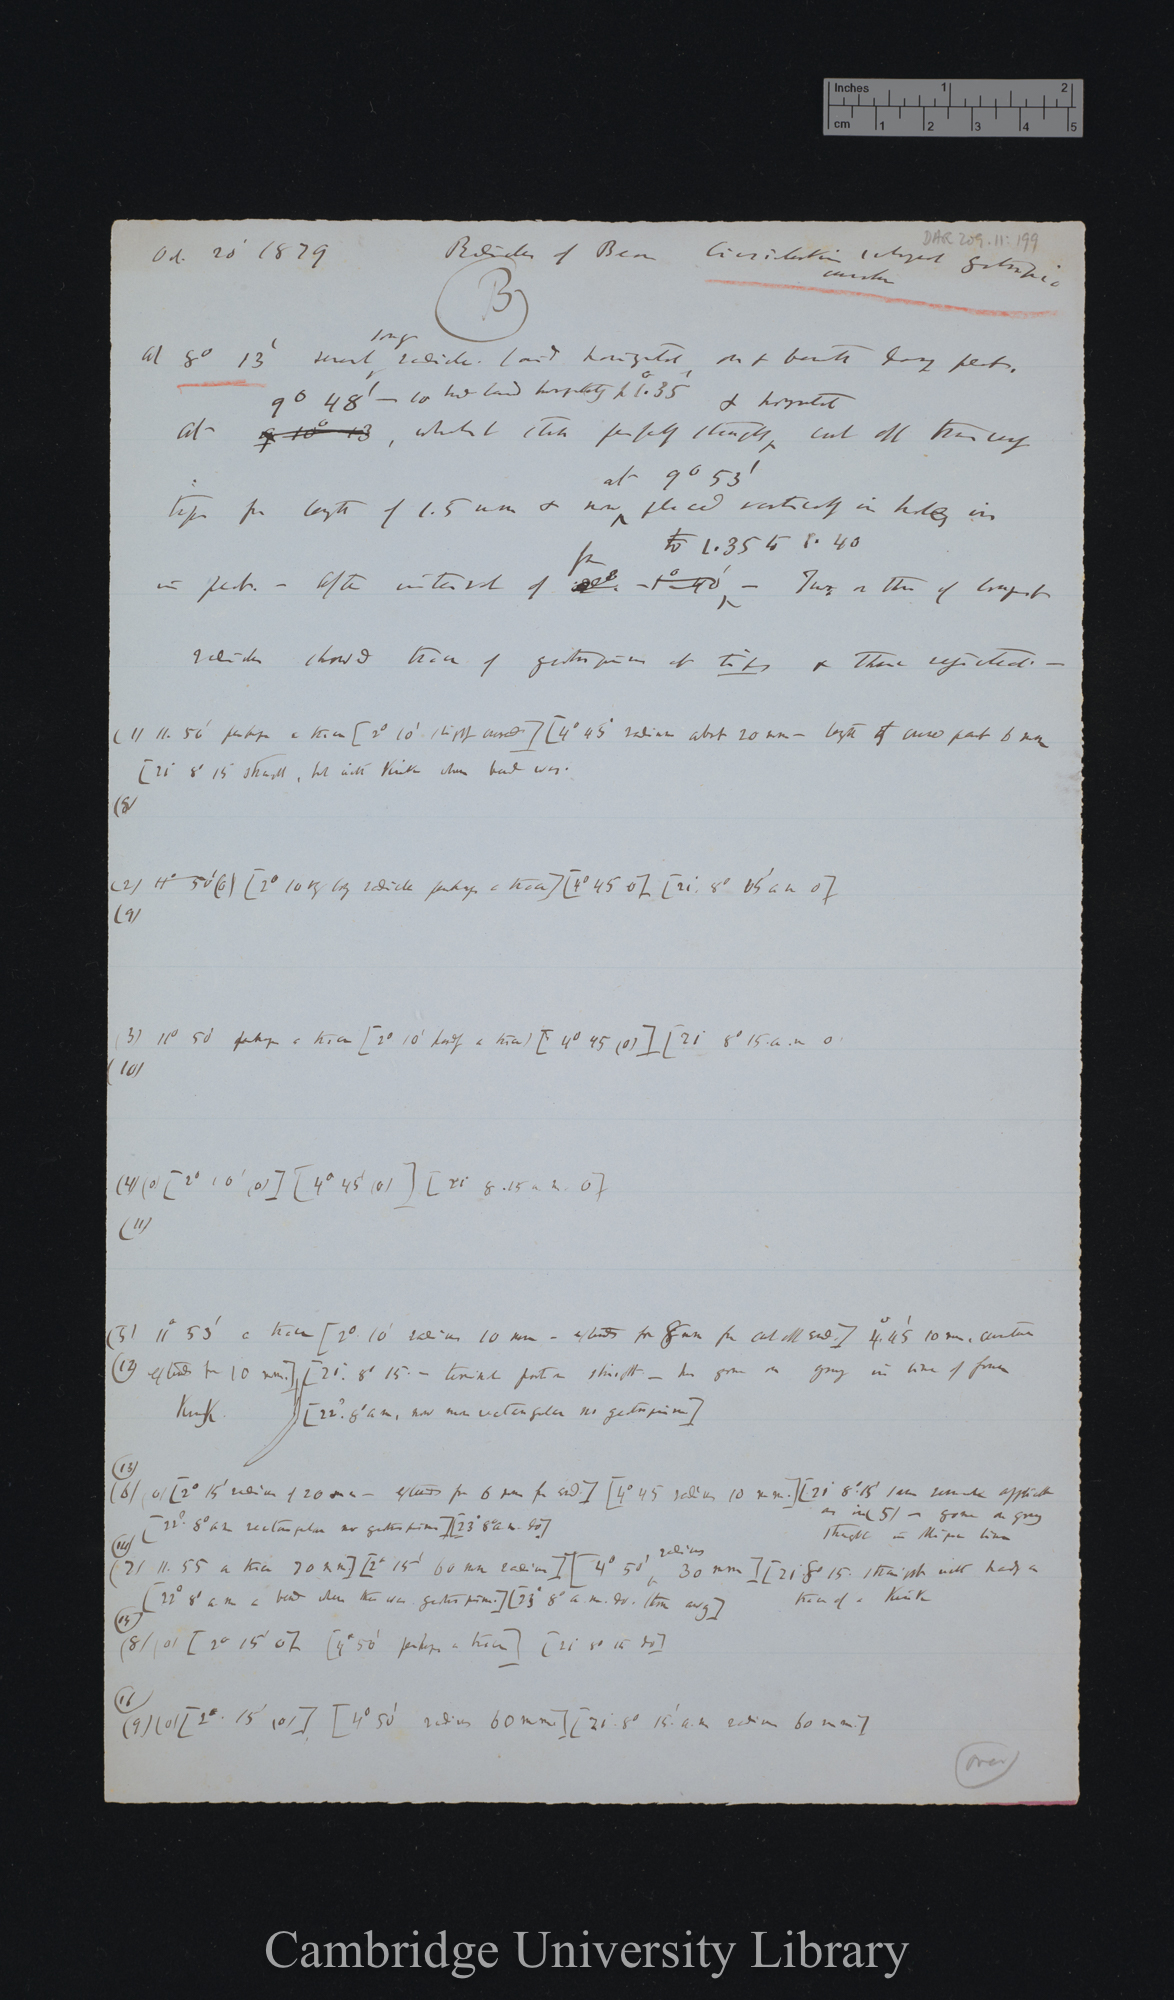 Inches 1 2
cm 1 2 3 4 5
DAR 209.11: 199
Oct. 20' 1879 Radicles of Bean
(B)
long
At 8° 13' several radicles laid horizontal, on & beneath damp peat.
9° 48' — so had laid horizontally 1°.35' & horizontal
at 10° 13, whilst still perfectly straight, cut off transversely
at 9° 53'
tips for length of 1.5 mm & now placed vertically in holes in
for to 1.35 to 1.40
in peat. — After interval of 1° 40' — Two or three of longest
radicles showed trace of geotropism at tips & these rejected. —
(1) 11. 50' perhaps a trace [2° 10' slightly curved] [4° 45' radius about 20 mm — length of curved part 6 mm
[21 8° 15 straight, but with kink where bend was.
(8)
(2) 11° 50' (0) [2° 10 very long radicle perhaps a trace] [4° 45 0] [21. 8° 15' a m 0]
(9)
(3) 11° 50' perhaps a trace [2° 10' hardly a trace] [4° 45 (0)] [21 8° 15. a.m 0
(10)
(4) (0) [2° 10' (0)] [4° 45' (0)] [21 8.15 a.m. 0]
(11)
(5) 11° 53' a trace [2° 10' radius 10 mm — extends for 8 mm from cut off end.] 4°.45' 10 mm, curvature
(12) extends for 10 mm.] [21. 8° 15. — terminal portion straight — has gone on growing in line of former
Kink. [22° 8° a m, now more rectangular no geotropism]
(13)
(6) (0) [2° 15' radius of 20 mm — extends for 6 mm from end.] [4° 45 radius 10 mm.] [21 8° 15' same remark applicable
as in (5) — gone on growing
[22° 8° a m rectangular no geotropism] [23° 8° a m. do] straight in this line
(14)
radius
(7) 11. 55 a trace 70 mm] [2° 15' 60 mm radius] [4° 50' 30 mm] [21 8° 15. straight with hardly a
[22° 8° a.m a bend where there was geotropism.] [23° 8° a.m. do. ] trace of a Kink
(15)
(8) (0) [2° 15' 0] [4° 50' perhaps a trace] [21 8° 15 do]
(16)
(9) (0) [2° 15' (0)] [4° 50' radius 60 mm] [21. 8° 15' a.m radius 60 mm.]
(over)
Cambridge University Library